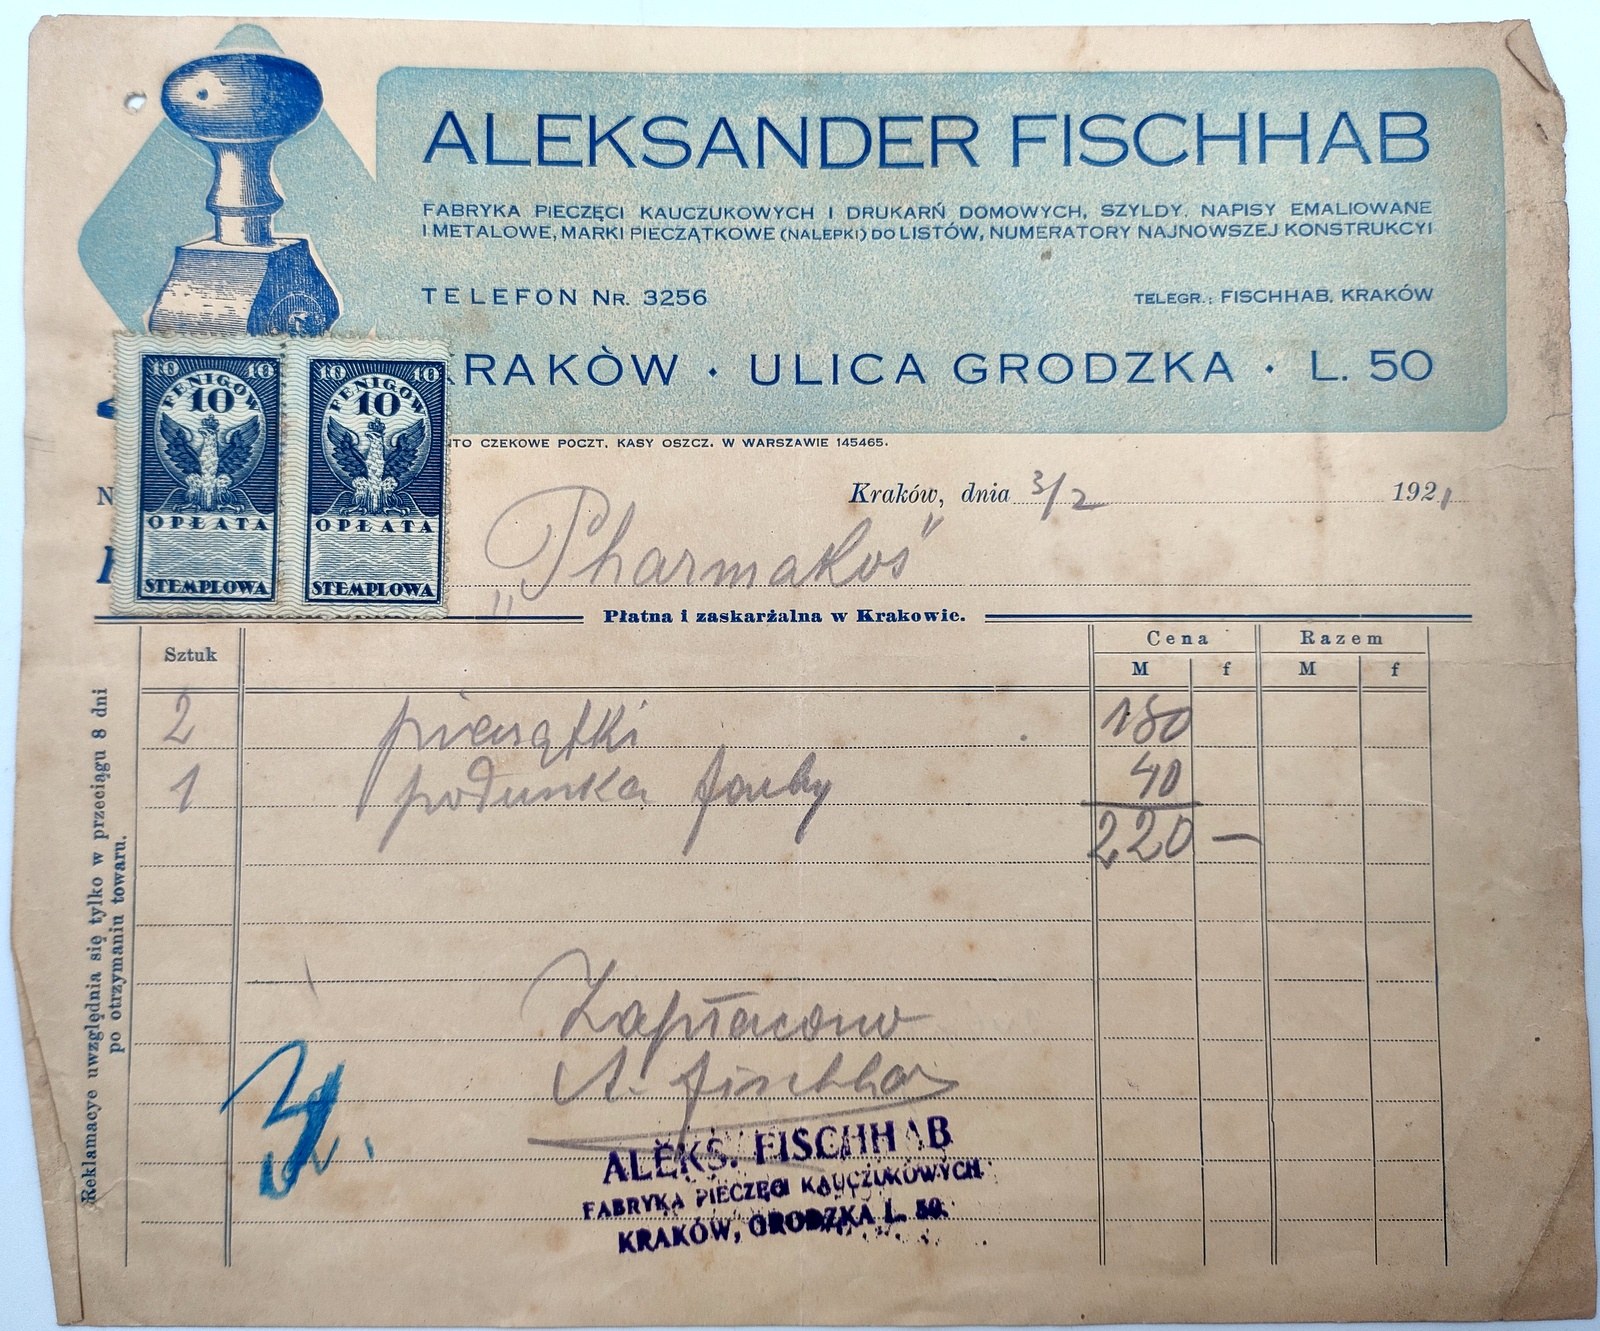 ALEKSANDER FISCHHAB
FABRYKA PIECZĘCI KAUCZUKOWYCH I DRUKARŃ DOMOWYCH, SZYLDY, NAPISY EMALIOWANE
I METALOWE, MARKI PIECZĄTKOWE (NALEPKI) DO LISTÓW, NUMERATORY NAJNOWSZEJ KONSTRUKCYI
TELEFON NR. 3256 TELEGR.: FISCHHAB, KRAKÓW
KRAKÓW · ULICA GRODZKA · L. 50
NTO CZEKOWE POCZT. KASY OSZCZ. W WARSZAWIE 145465.
10 10
FENIGÓW
10
OPŁATA
STEMPLOWA
10 10
FENIGÓW
10
OPŁATA
STEMPLOWA
N
Kraków, dnia 3/2 1921
„Pharmakoś"
Płatna i zaskarżalna w Krakowie.
Sztuk Cena Razem
M f M f
2 pieczątki 180
1 poduszka farby 40
220 —
Zapłacono
A. Fischhab
ALEKS. FISCHHAB
FABRYKA PIECZĘCI KAUCZUKOWYCH
KRAKÓW, GRODZKA L. 50.
Reklamacye uwzględnia się tylko w przeciągu 8 dni
po otrzymaniu towaru.